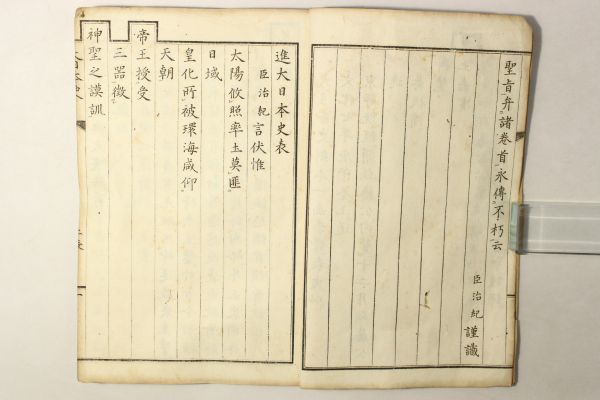 聖旨弁諸卷首永傳不朽云
臣治紀謹識
進大日本史表
臣治紀言伏惟
太陽攸照率土莫匪
日域
皇化所被環海咸仰
天朝
帝王授受
三器徵
神聖之謨訓